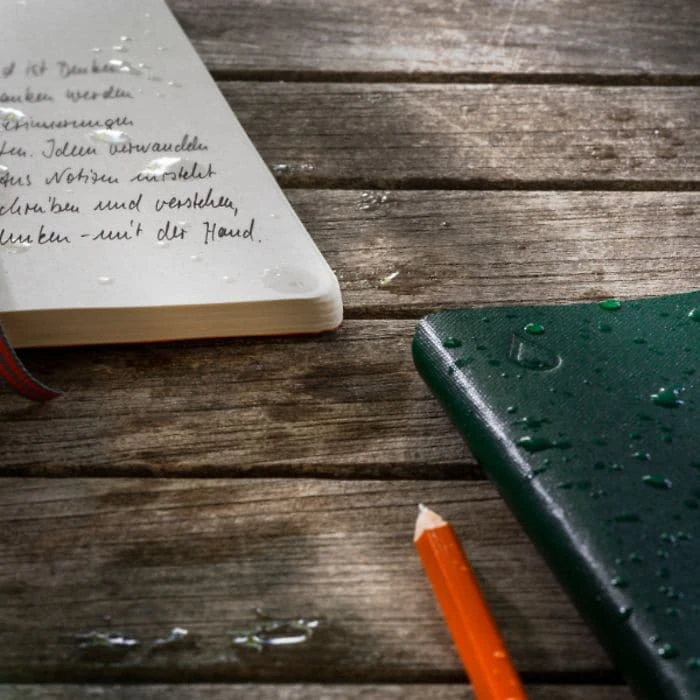 d ist Denken
anken werden
erinnerungen
ten. Ideen verwandeln
Aus Notizen entsteht
chreiben und verstehen,
enken - mit der Hand.